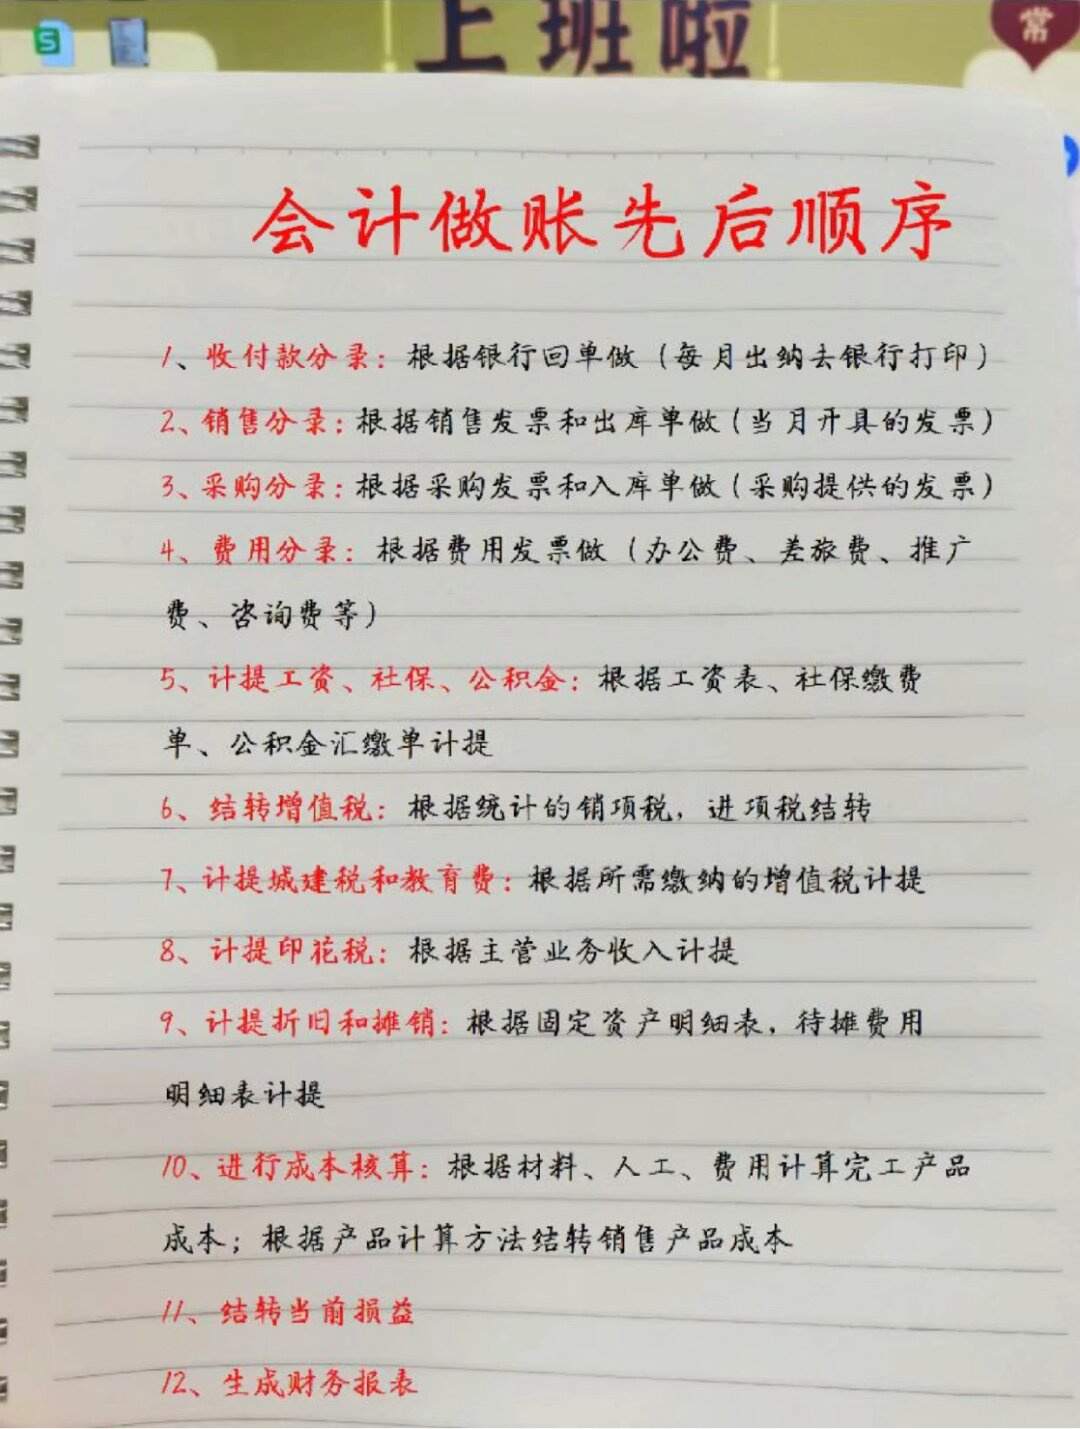 S
上班啦
常
会计做账先后顺序
1、收付款分录：根据银行回单做（每月出纳去银行打印）
2、销售分录：根据销售发票和出库单做（当月开具的发票）
3、采购分录：根据采购发票和入库单做（采购提供的发票）
4、费用分录：根据费用发票做（办公费、差旅费、推广
费、咨询费等）
5、计提工资、社保、公积金：根据工资表、社保缴费
单、公积金汇缴单计提
6、结转增值税：根据统计的销项税，进项税结转
7、计提城建税和教育费：根据所需缴纳的增值税计提
8、计提印花税：根据主营业务收入计提
9、计提折旧和摊销：根据固定资产明细表，待摊费用
明细表计提
10、进行成本核算：根据材料、人工、费用计算完工产品
成本；根据产品计算方法结转销售产品成本
11、结转当前损益
12、生成财务报表